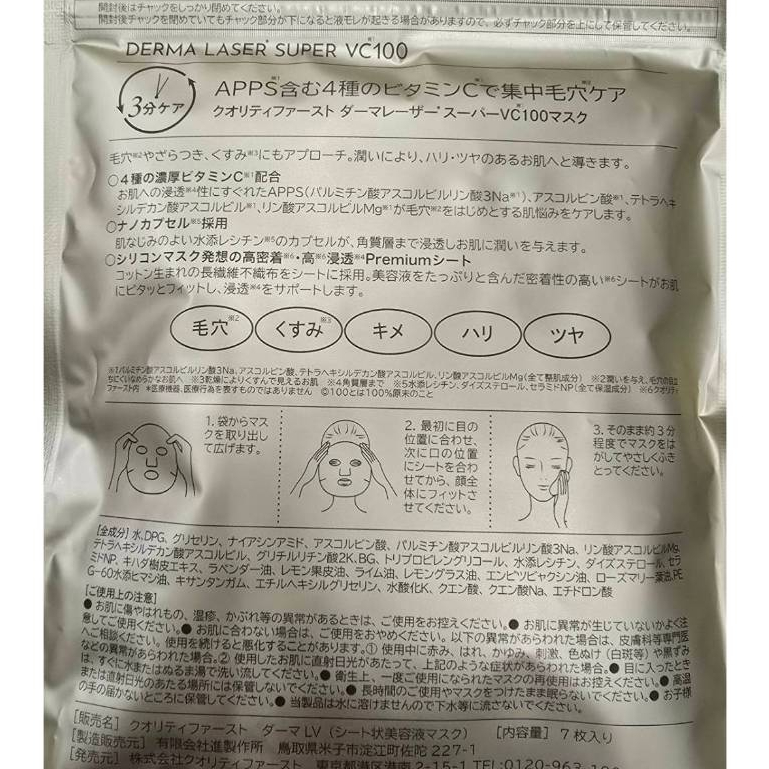 開封後はチャックをしっかり閉めてください。
開封後チャックを閉めていてもチャック部分が下になると液モレが起きる場合がありますので、必ずチャック部分を上にして保管してください。
DERMA LASER※ SUPER VC※100
3分ケア
APPS※1含む4種のビタミンC※1で集中毛穴※2ケア
クオリティファースト ダーマレーザー※スーパーVC※100マスク
毛穴※2やざらつき、くすみ※3にもアプローチ。潤いにより、ハリ・ツヤのあるお肌へと導きます。
○4種の濃厚ビタミンC※1配合
お肌への浸透※4性にすぐれたAPPS(パルミチン酸アスコルビルリン酸3Na※1)、アスコルビン酸※1、テトラヘキ
シルデカン酸アスコルビル※1、リン酸アスコルビルMg※1が毛穴※2をはじめとする肌悩みをケアします。
○ナノカプセル※5採用
肌なじみのよい水添レシチン※5のカプセルが、角質層まで浸透しお肌に潤いを与えます。
○シリコンマスク発想の高密着※6・高※6浸透※4Premiumシート
コットン生まれの長繊維不織布をシートに採用。美容液をたっぷりと含んだ密着性の高い※6シートがお肌
にピタッとフィットし、浸透※4をサポートします。
毛穴※2 くすみ※3 キメ ハリ ツヤ
※1パルミチン酸アスコルビルリン酸3Na、アスコルビン酸、テトラヘキシルデカン酸アスコルビル、リン酸アスコルビルMg(全て整肌成分) ※2潤いを与え、毛穴の目立
ちにくいなめらかなお肌へ ※3乾燥によりくすんで見えるお肌 ※4角質層まで ※5水添レシチン、ダイズステロール、セラミドNP(全て保湿成分) ※6クオリティ
ファースト内 *医療機器、医療行為を表すものではありません ©100とは100%原末のこと
1. 袋からマス
クを取り出し
て広げます。
2. 最初に目の
位置に合わせ、
次に口の位置
にシートを合わ
せてから、顔全
体にフィットさ
せてください。
3. そのまま約3分
程度でマスクをは
がしてやさしくふき
とってください。
[全成分] 水、DPG、グリセリン、ナイアシンアミド、アスコルビン酸、パルミチン酸アスコルビルリン酸3Na、リン酸アスコルビルMg、
テトラヘキシルデカン酸アスコルビル、グリチルリチン酸2K、BG、トリプロピレングリコール、水添レシチン、ダイズステロール、セラ
ミドNP、キハダ樹皮エキス、ラベンダー油、レモン果皮油、ライム油、レモングラス油、エンピツビャクシン油、ローズマリー葉油、PE
G-60水添ヒマシ油、キサンタンガム、エチルヘキシルグリセリン、水酸化K、クエン酸、クエン酸Na、エチドロン酸
[ご使用上の注意]
● お肌に傷やはれもの、湿疹、かぶれ等の異常があるときは、ご使用をお控えください。● お肌に異常が生じていないかよく注
意してご使用ください。● お肌に合わない場合は、ご使用をおやめください。以下の異常があらわれた場合は、皮膚科等専門医
へご相談ください。使用を続けると悪化することがあります。① 使用中に赤み、はれ、かゆみ、刺激、色ぬけ(白斑等)や黒ずみ
などの異常があらわれた場合。② 使用したお肌に直射日光があたって、上記のような症状があらわれた場合。● 目に入ったとき
は、すぐに水またはぬるま湯で洗い流してください。● 衛生上、一度ご使用になられたマスクの再使用はお控えください。● 高温
または直射日光のあたる場所には保管しないでください。● 長時間のご使用やマスクをつけたまま眠らないでください。● お子様
の手の届かないところに保管してください。● 当製品は水に溶けませんので下水等に流さないでください。
[販売名] クオリティファースト ダーマ LV (シート状美容液マスク) [内容量] 7枚入り
[製造販売元] 有限会社進製作所 鳥取県米子市淀江町佐陀 227-1
[発売元] 株式会社クオリティファースト 東京都港区港南 2-15-1 TEL:0120-963-